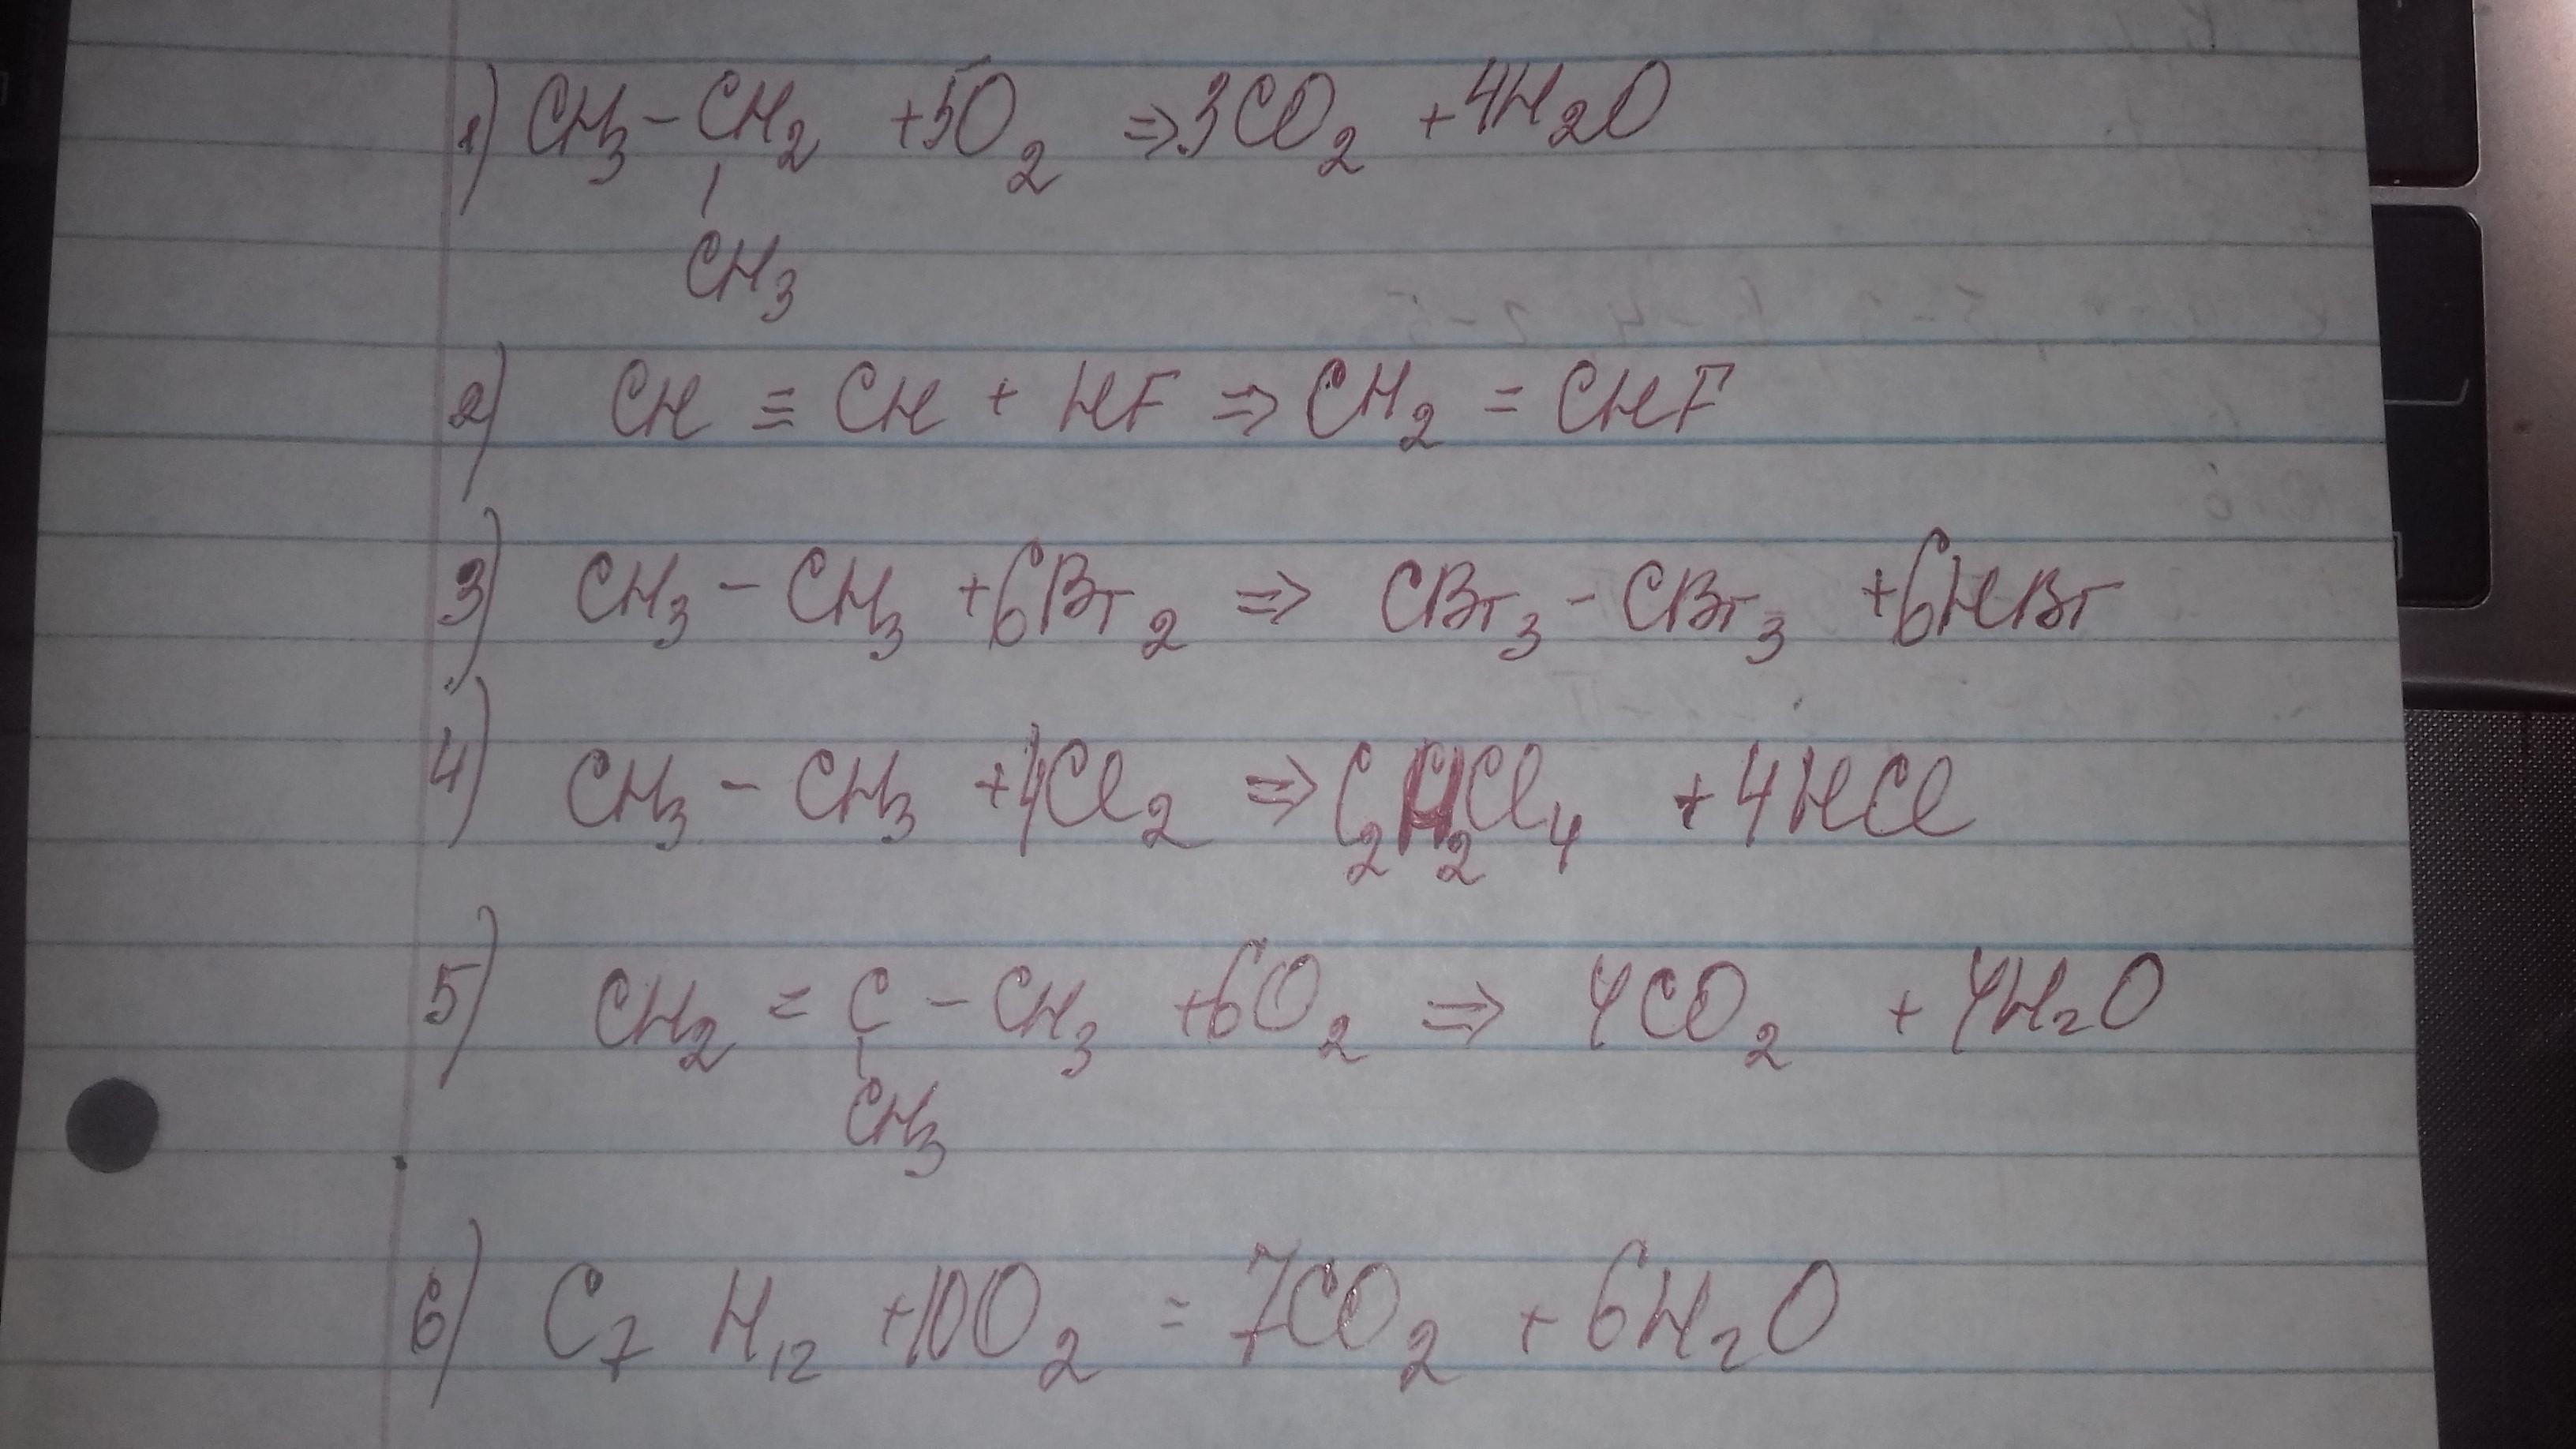 1) CH₃ – CH₂ + 5O₂ ⇒ 3CO₂ + 4H₂O
|
CH₃
2) CH ≡ CH + HF ⇒ CH₂ = CHF
3) CH₃ – CH₃ + 6Br₂ ⇒ CBr₃ – CBr₃ + 6HBr
4) CH₃ – CH₃ + 4Cl₂ ⇒ C₂H₂Cl₄ + 4HCl
5) CH₂ = C – CH₃ + 6O₂ ⇒ 4CO₂ + 4H₂O
|
CH₃
6) C₇H₁₂ + 10O₂ = 7CO₂ + 6H₂O